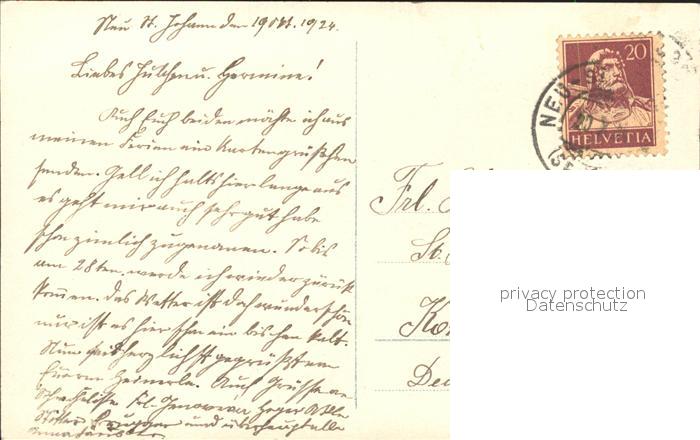 Neu St. Johann den 19 Okt. 1924.
Liebes Julchen u. Hermine!
Auch Euch beiden möchte ich aus
meinen Ferien ein Kartengrüßchen
senden. Gell ich halts hier lange aus
es geht mir auch sehr gut habe
schon ziemlich zugenommen. So bis
am 28ten. werde ich wieder zurück
kommen. das Wetter ist doch wunderschön
nur ist es hier schon ein bischen kalt.
Nun seid herzlichst gegrüßt von
Eurem Auch Grüsse an
Frl.
und überhaupt alle
20
HELVETIA
NEU
Frl.
St.
Ko
Deu
privacy protection
Datenschutz